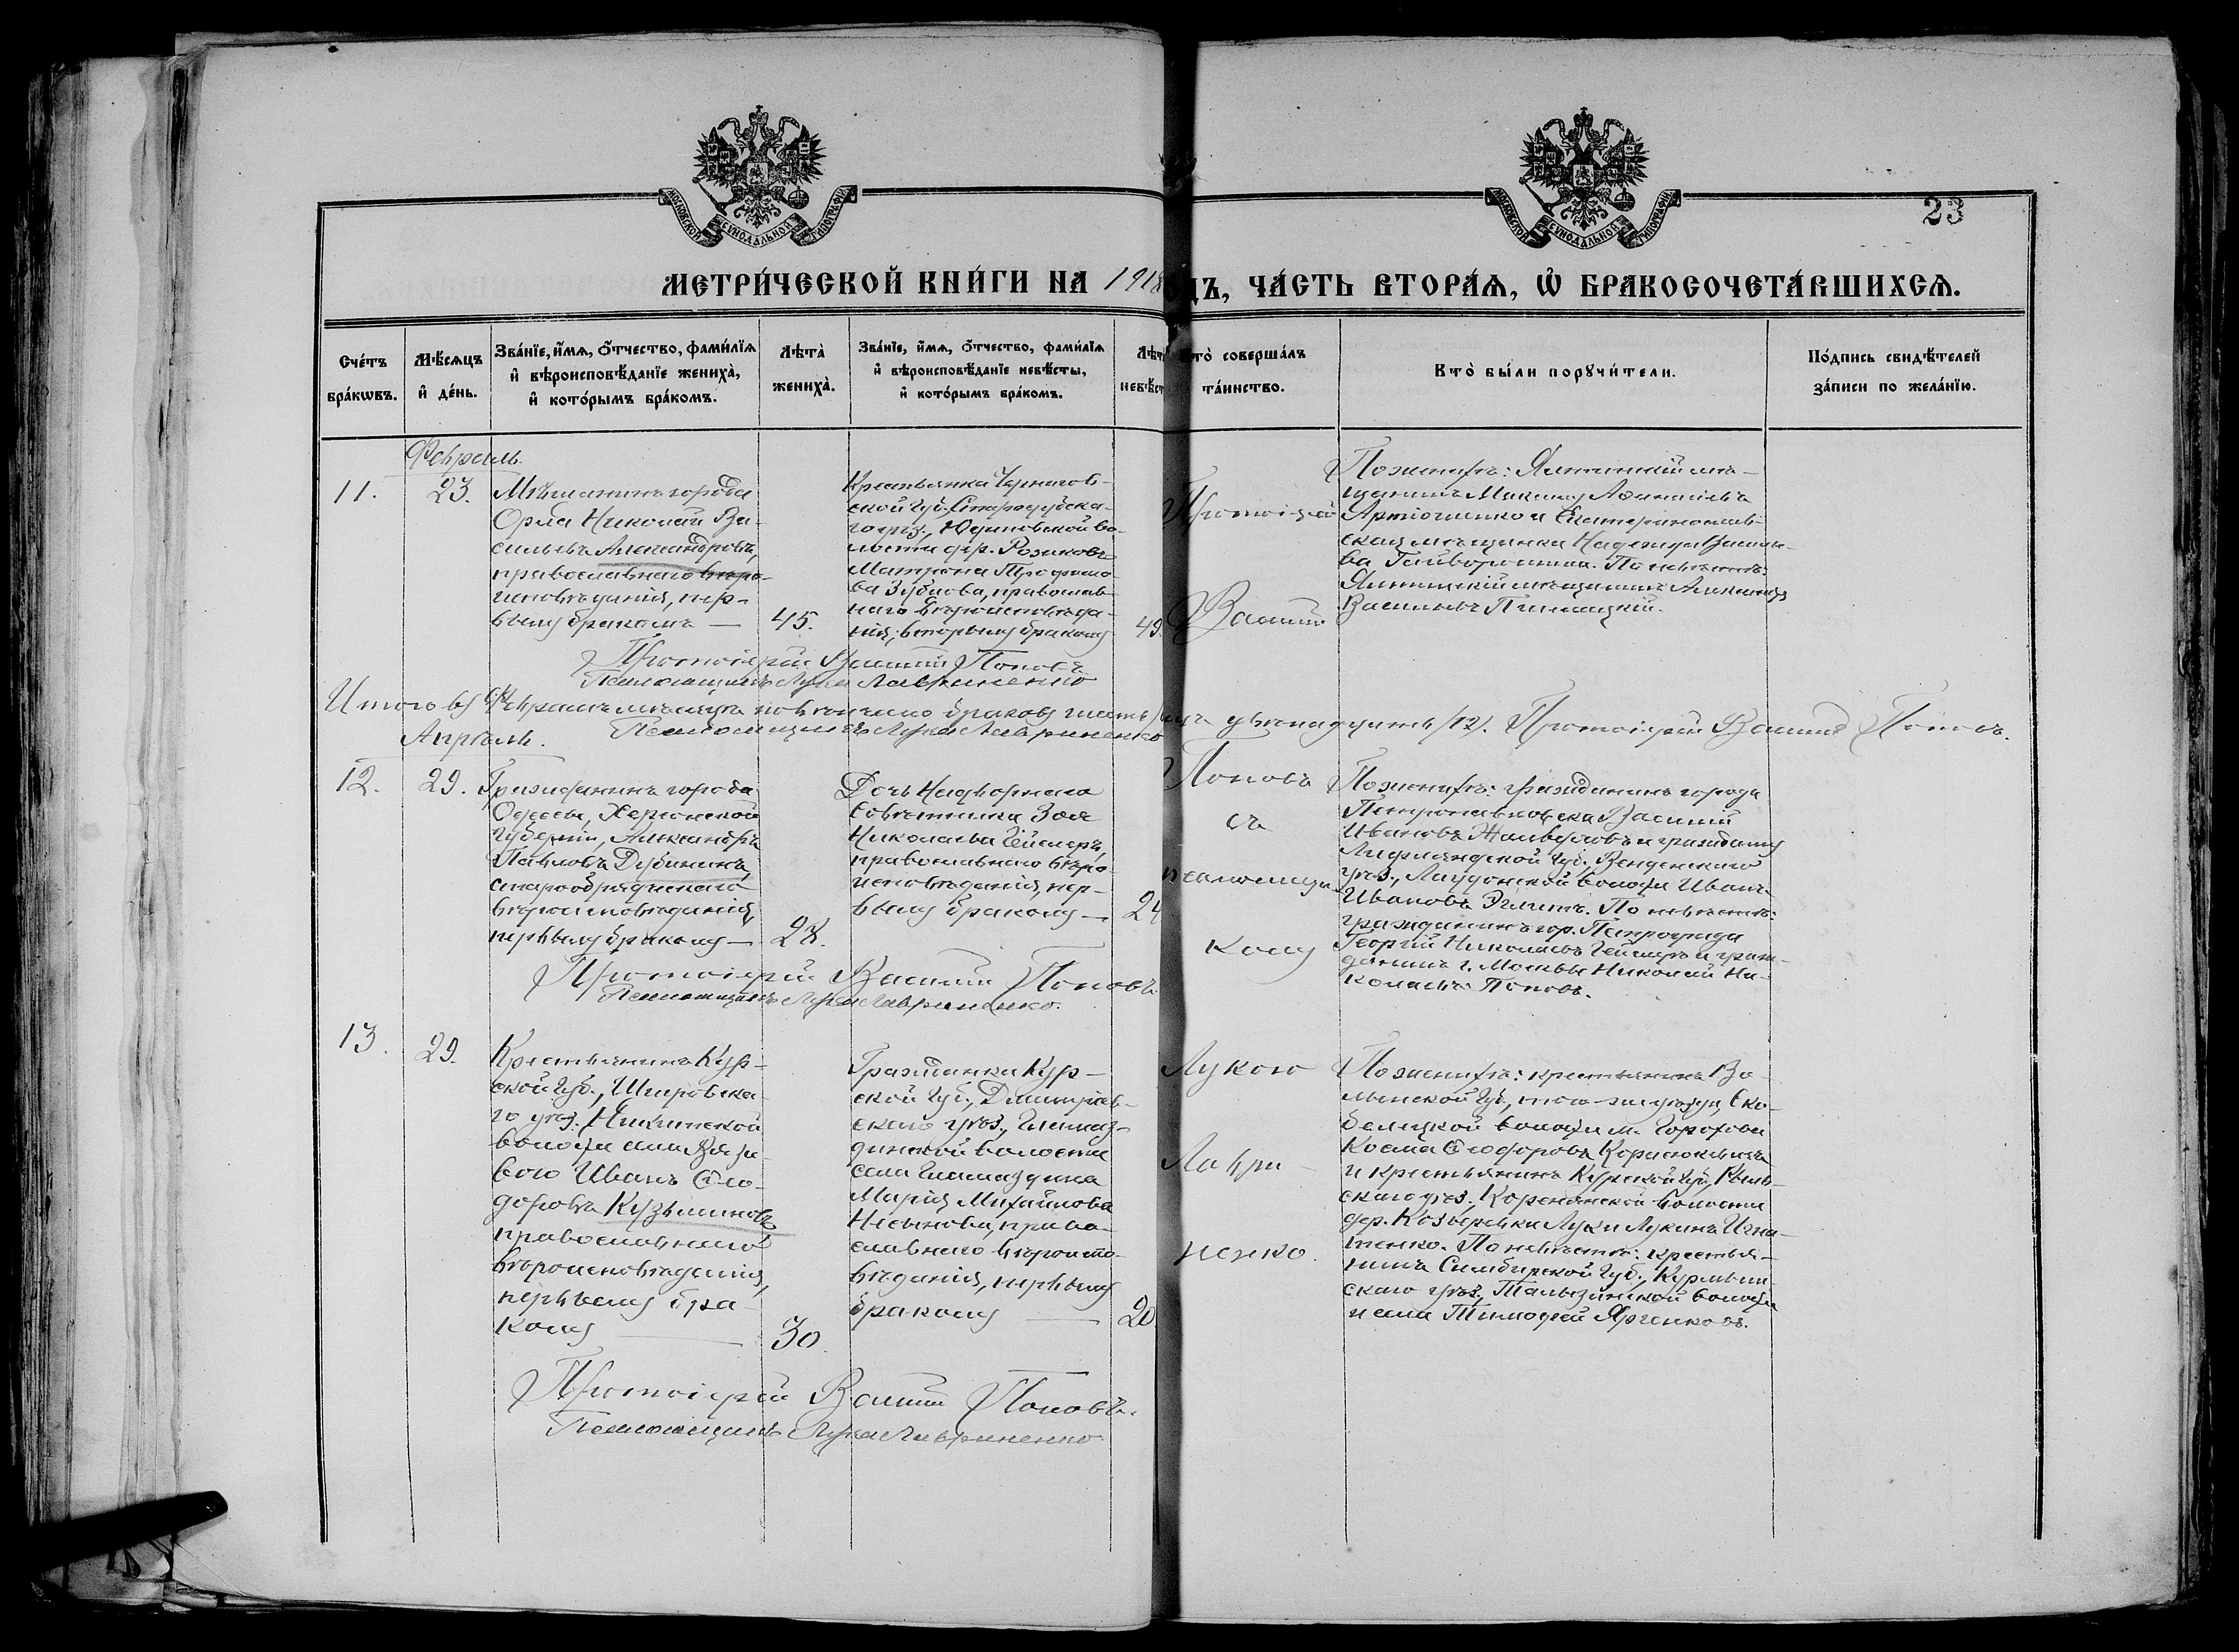 МОСКОВСКОЙ СѴНОДАЛЬНОЙ ТИПОГРАФІИ
МОСКОВСКОЙ СѴНОДАЛЬНОЙ ТИПОГРАФІИ
23
МЕТРИ́ЧЕСКОЙ КНИ́ГИ НА 1918
ДЪ, ЧА́СТЬ ВТОРА́Ѧ, Ѿ БРАКОСОЧЕТА́ВШИХСѦ.
Сче́тъ
бра́кѡвъ.
Мѣ́сяцъ
и҆ де́нь.
Зва́нїе, и҆́мѧ, ѻ҆́тчество, фами́лїѧ
и҆ вѣроисповѣ́данїе жениха̀,
и҆ кото́рымъ бра́комъ.
Лѣта̀
жениха̀.
Зва́нїе, и҆́мѧ, ѻ҆́тчество, фами́лїѧ
и҆ вѣроисповѣ́данїе невѣ́сты,
и҆ кото́рымъ бра́комъ.
Лѣт
невѣ́ст
то̀ соверша́лъ
та́инство.
Кто̀ бы́ли порꙋчи́тели.
По́дпись свидѣ́телей
за́писи по жела́нїю.
Февраль.
11.
23.
Мѣщанинъ города
Орла Николай Ва-
сильевъ Александровъ,
православнаго вѣро-
исповѣданія, пер-
вымъ бракомъ —
45.
Крестьянка Чернигов-
ской губ., Стародубска-
го уѣз., Юдиновской во-
лости дер.
Матрона Трофимо-
ва Зубкова, православ-
наго вѣроисповѣда-
нія, вторымъ бракомъ
49.
Протоіерей
Василій
По женихѣ: Ялтинскій мѣ-
щанинъ Максимъ
Артюшенко и Екатеринослав-
ская мѣщанка Надежда
По невѣстѣ:
Ялтинскій мѣщанинъ Александръ
Васильевъ
Протоіерей Василій Поповъ
Псаломщикъ Лука Лавриненко
Итого въ Февралѣ мѣсяцѣ повѣнчано браковъ
двѣнадцать (12). Протоіерей Василій Поповъ.
Псаломщикъ Лука Лавриненко
Апрѣль.
12.
29.
Гражданинъ города
Одессы, Херсонской
губерніи, Александръ
Павловъ Дубининъ,
старообрядческаго
вѣроисповѣданія,
первымъ бракомъ —
28.
Дочь Надворнаго
Совѣтника Зоя
Николаева Гейслеръ,
православнаго вѣро-
исповѣданія, пер-
вымъ бракомъ —
24
Поповъ
съ
псаломщи-
комъ
По женихѣ: гражданинъ города
Петропавловска Василій
Ивановъ и гражданинъ
Лифляндской губ. Венденскаго
уѣз., Лаудонской волости Иванъ
Ивановъ По невѣстѣ:
гражданинъ гор. Петрограда
Георгій Николаевъ Гейслеръ и граж-
данинъ г. Москвы Николай Ни-
колаевъ Поповъ.
Протоіерей Василій Поповъ.
Псаломщикъ Лука Лавриненко.
13.
29.
Крестьянинъ Кур-
ской губ., Щигровска-
го уѣз.
волости села
Иванъ Ѳео-
доровъ Кузьминовъ
православнаго
вѣроисповѣданія,
первымъ бра-
комъ —
30.
Гражданка Кур-
ской губ., Димитріев-
скаго уѣз.,
волости
села
Марія Михайлова
право-
славнаго вѣроиспо-
вѣданія, первымъ
бракомъ —
20
Лукою
Лаври-
ненко.
По женихѣ: крестьянинъ Во-
лынской губ., того-же уѣзда, Ско-
белецкой волости м. Горохова
Косма Ѳеодоровъ
и крестьянинъ Курской губ., Рыль-
скаго уѣз., Кореневской волости
дер. Лука Лукинъ Игна-
тенко. По невѣстѣ: крестья-
нинъ Симбирской губ., Курмыш-
скаго уѣз., Талызинской волости
и села Тимофей
Протоіерей Василій Поповъ.
Псаломщикъ Лука Лавриненко